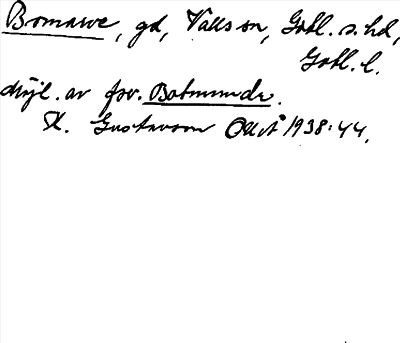 Bomarve, gd, Valls sn, Gotl. s. hd,
Gotl. l.
möjl. av fsv. Botmunde.
H. Gustavson OUÅ 1938:44.